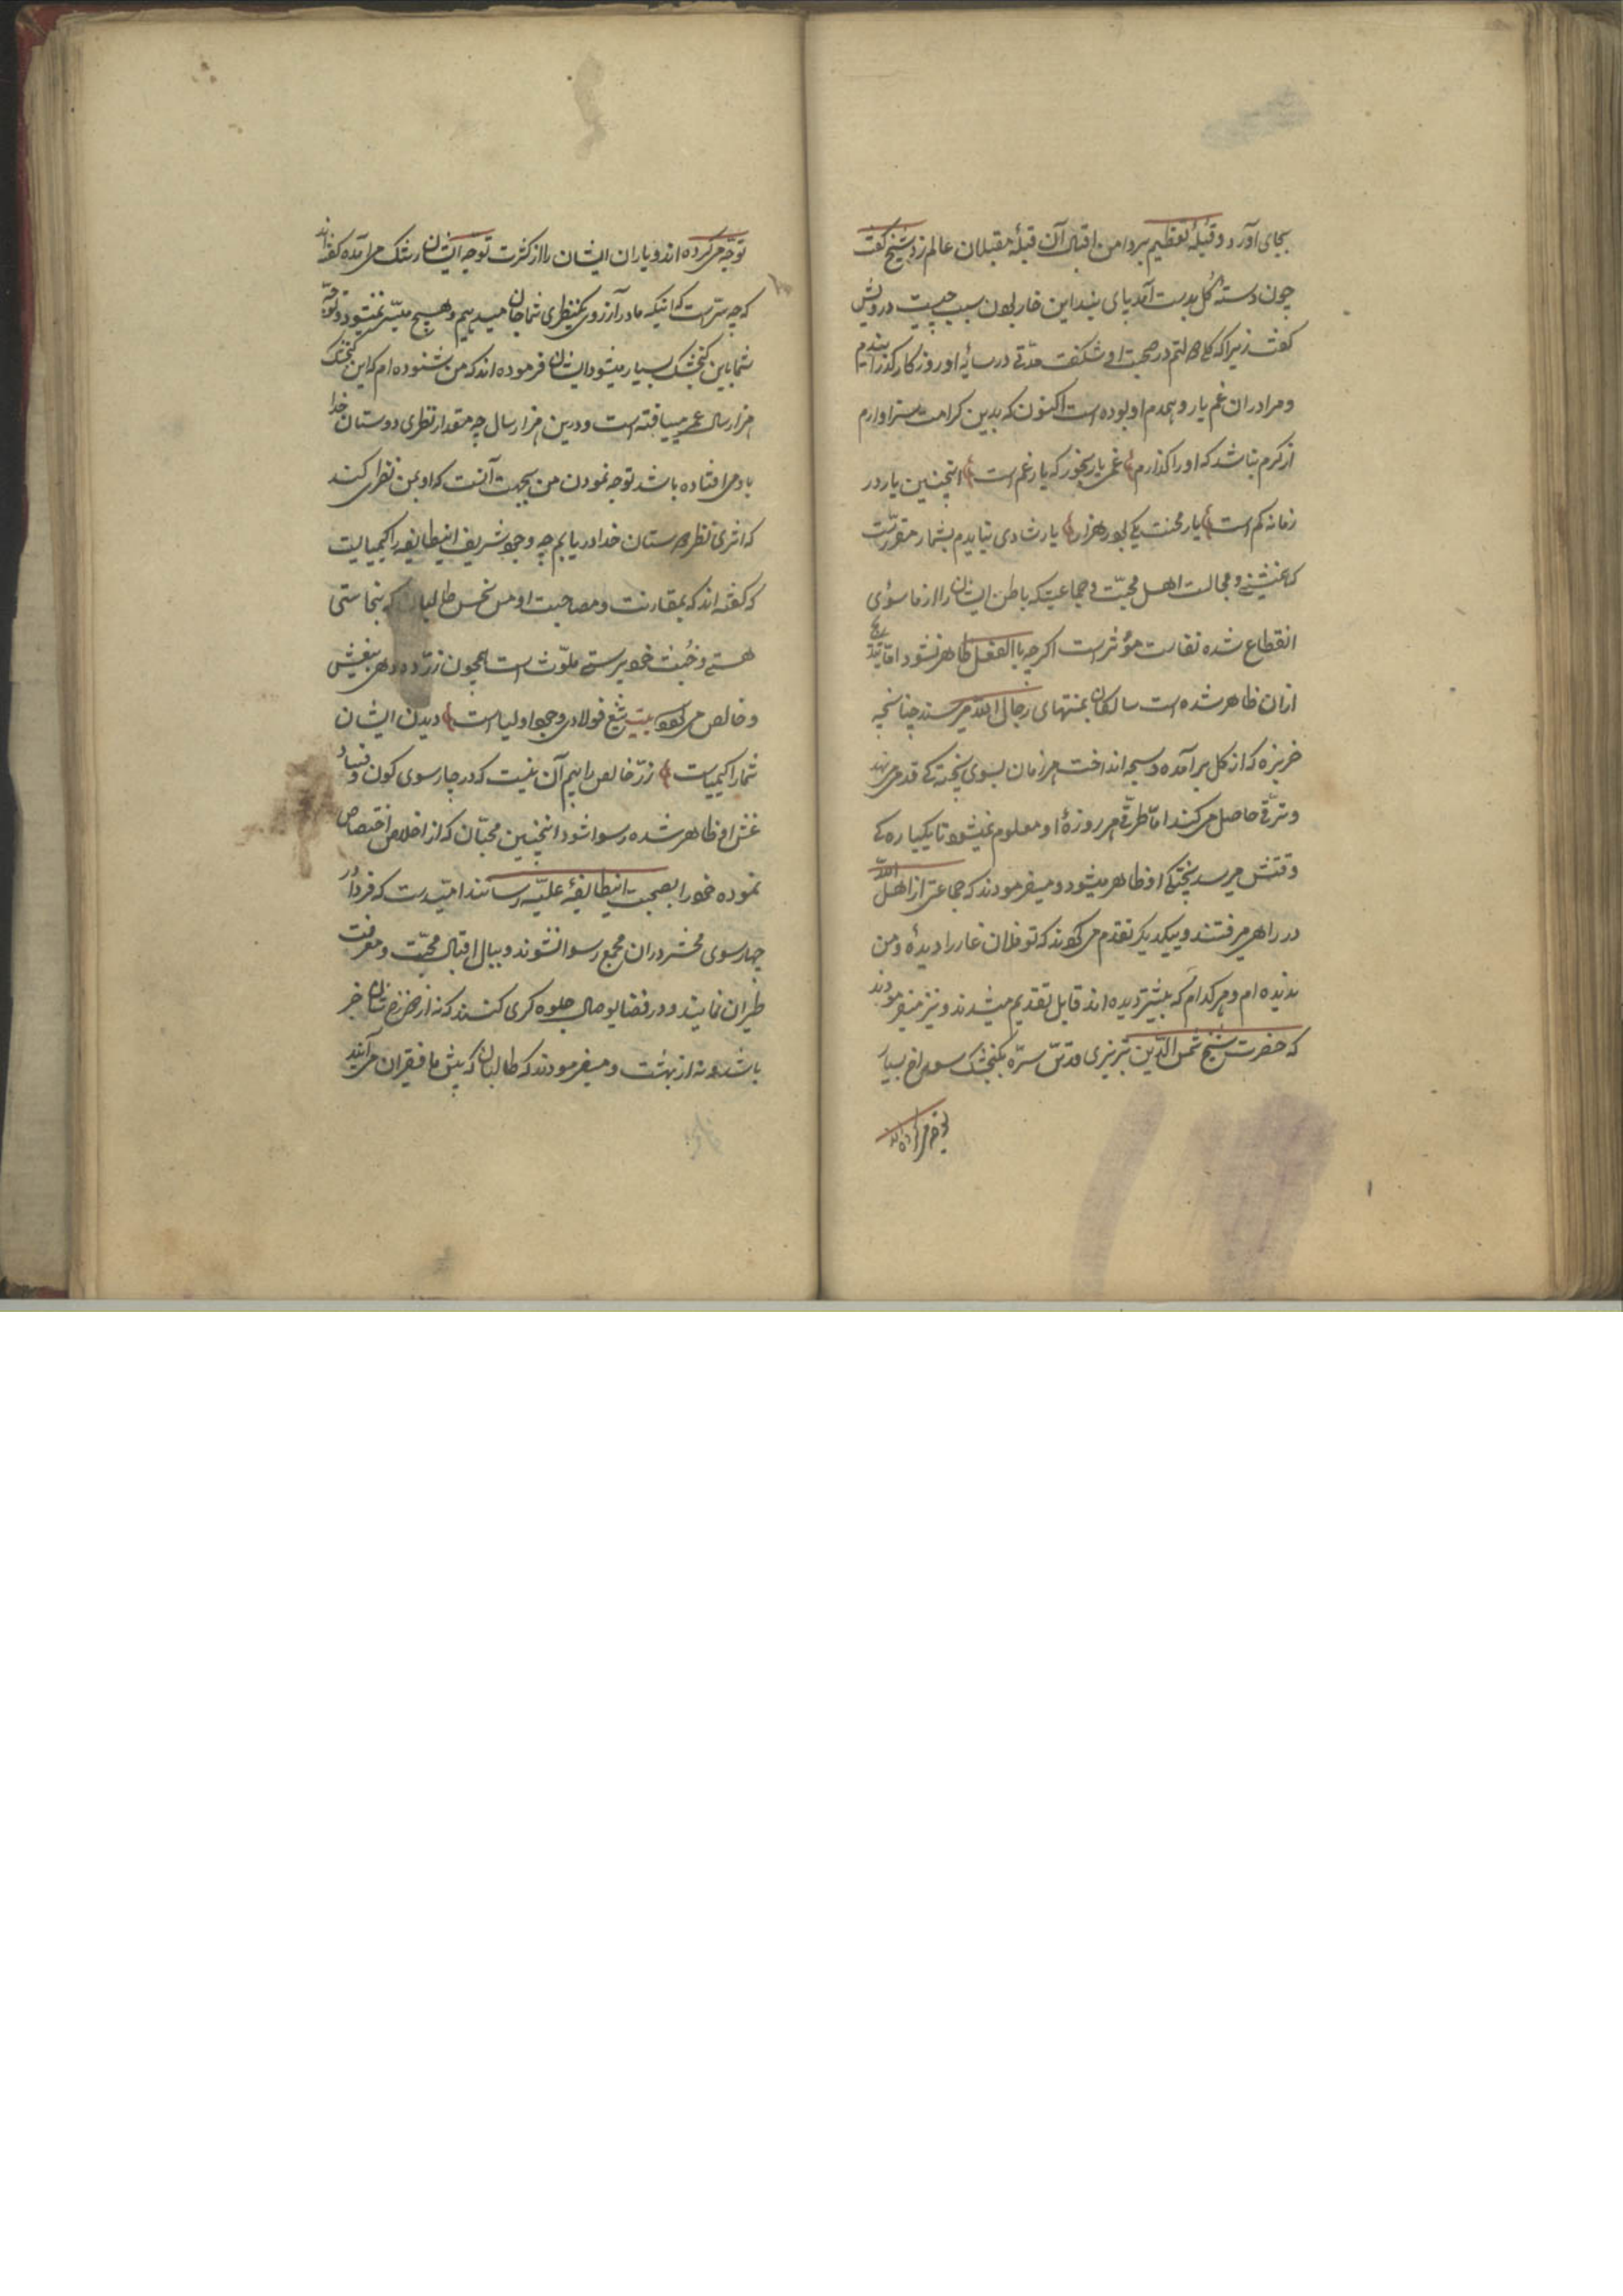 بجای آورد و قبلهٔ تعظیم بر دامن اقبال آن قبلهٔ مقبلان عالم زد شیخ گفت
چون دستهٔ گل بدست آمد بپای بند این خار بودن سبب چیست درویش
گفت زیرا که گل دولتم در صحبت او شکفت مدتی در سایهٔ او روزکار کذرانیدم
و مرا دران غم یار و همدم او بوده است اکنون که بدین کرامت سزاوارم
از کرم نباشد که او را کذارم غم یار بخور که یار غم است اینچنین یار در
زمانه کم است یار محنت یکی بود ز هزار یار شادی نیایدم بشمار مقررست
که همنشینی و مجالست اهل محبت و جماعتیکه باطن ایشان را از ماسوی
انقطاع شده نفاست مؤثر است اکرچه بالفعل ظاهر نشود اما
ازان ظاهر شده است سالکان بمنتهای رجال الله میرسند چنانچه
خربزه که از کل برآمده و سیجه انداخت هر زمان بسوی پختکی قدم می نهد
و ترقی حاصل می کند اما طرقی هر روزهٔ او معلوم نمیشود تا یکبارگی
وقتش میرسد پختکی او ظاهر میشود و میفرمودند که جماعتی از اهل الله
در راهی میرفتند و بیکدیکر تقدم می کردند که تو فلان غار را دیدهٔ و من
ندیده ام و هرکدام که بیشتر دیده اند قابل تقدیم میشدند و نیز میفرمودند
که حضرت شیخ شمس الدین تبریزی قدس سره بکنجشک سوراخ بسیار
توجه می کرده اند
توجه می کرده اند و یاران ایشان را از کثرت توجه ایشان رشک می آمده گفته اند
که چه سر است که اینکه ما در آرزوی یک نظری شما جان میدهیم و هیچ میسر نمیشود و توجه
شما باین کنجشک بسیار میشود ایشان فرموده اند که من شنوده ام که این کنجشک
هزار سال عمر میافته است و درین هزار سال چه مقدار نظری دوستان خدا
باو می افتاده باشد توجه نمودن من بجهت آنست که او بمن نظر کند
که اثری نظر دوستان خدا دریابم چه وجود شریف اینطایفه را کیمیائیست
که گفته اند که بمقارنت و مصاحبت او مس نحس طالبان که بنجاستی
هستی و خبث خودپرستی ملوث است همچون زر ده دهی بیغش
و خالص می شود بیت تیغ فولادی وجود اولیا است دیدن ایشان
شما را کیمیاست زر خالص را بیم آن نیست که در چارسوی کون و فساد
غش او ظاهر شده رسوا شود اینچنین محبان که از اخلاص اختصاص
نموده خود را بصحبت اینطایفهٔ علیه رسانند امیدست که فردا در
چهارسوی محشر دران مجمع رسوا نشوند و ببال اقبال محبت و معرفت
طیران نمایند و در فضای وصال جلوه کری کنند که نه از دوزخ شان خبر
باشد و نه از بهشت و میفرمودند که طالبان که پیش ما فقیران می آیند